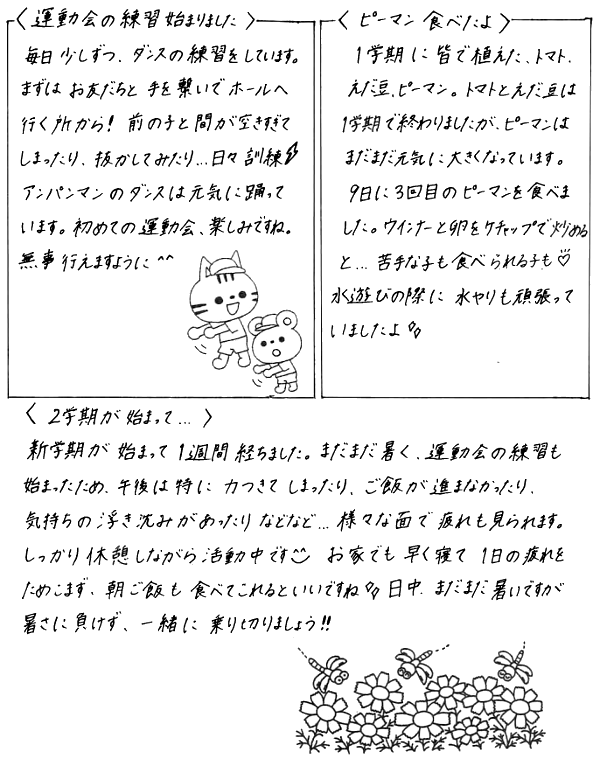 〈 運動会の練習 始まりました 〉
毎日 少しずつ、ダンスの練習をしています。
まずは お友だちと 手を繋いで ホールへ
行く所から! 前の子と間が空きすぎて
しまったり、抜かしてみたり…日々訓練
アンパンマンのダンスは元気に踊って
います。初めての運動会、楽しみですね。
無事 行えますように^^
〈 ピーマン 食べたよ 〉
1学期に皆で植えた、トマト、
えだ豆、ピーマン。トマトとえだ豆は
1学期で終わりましたが、ピーマンは
まだまだ元気に大きくなっています。
9日に3回目のピーマンを食べま
した。ウインナーと卵をケチャップで炒める
と… 苦手な子も食べられる子も♡
水遊びの際に 水やりも頑張って
いましたよ
〈 2学期が始まって… 〉
新学期が 始まって 1週間 経ちました。まだまだ暑く、運動会の練習も
始まったため、午後は特に 力つきて しまったり、ご飯が進まなかったり、
気持ちの 浮き沈みがあったり などなど… 様々な面で 疲れも見られます。
しっかり休憩しながら活動中です お家でも 早く寝て 1日の疲れを
ためこまず、朝ご飯も 食べてこれるといいですね 日中、まだまだ暑いですが
暑さに負けず、一緒に 乗り切りましょう!!